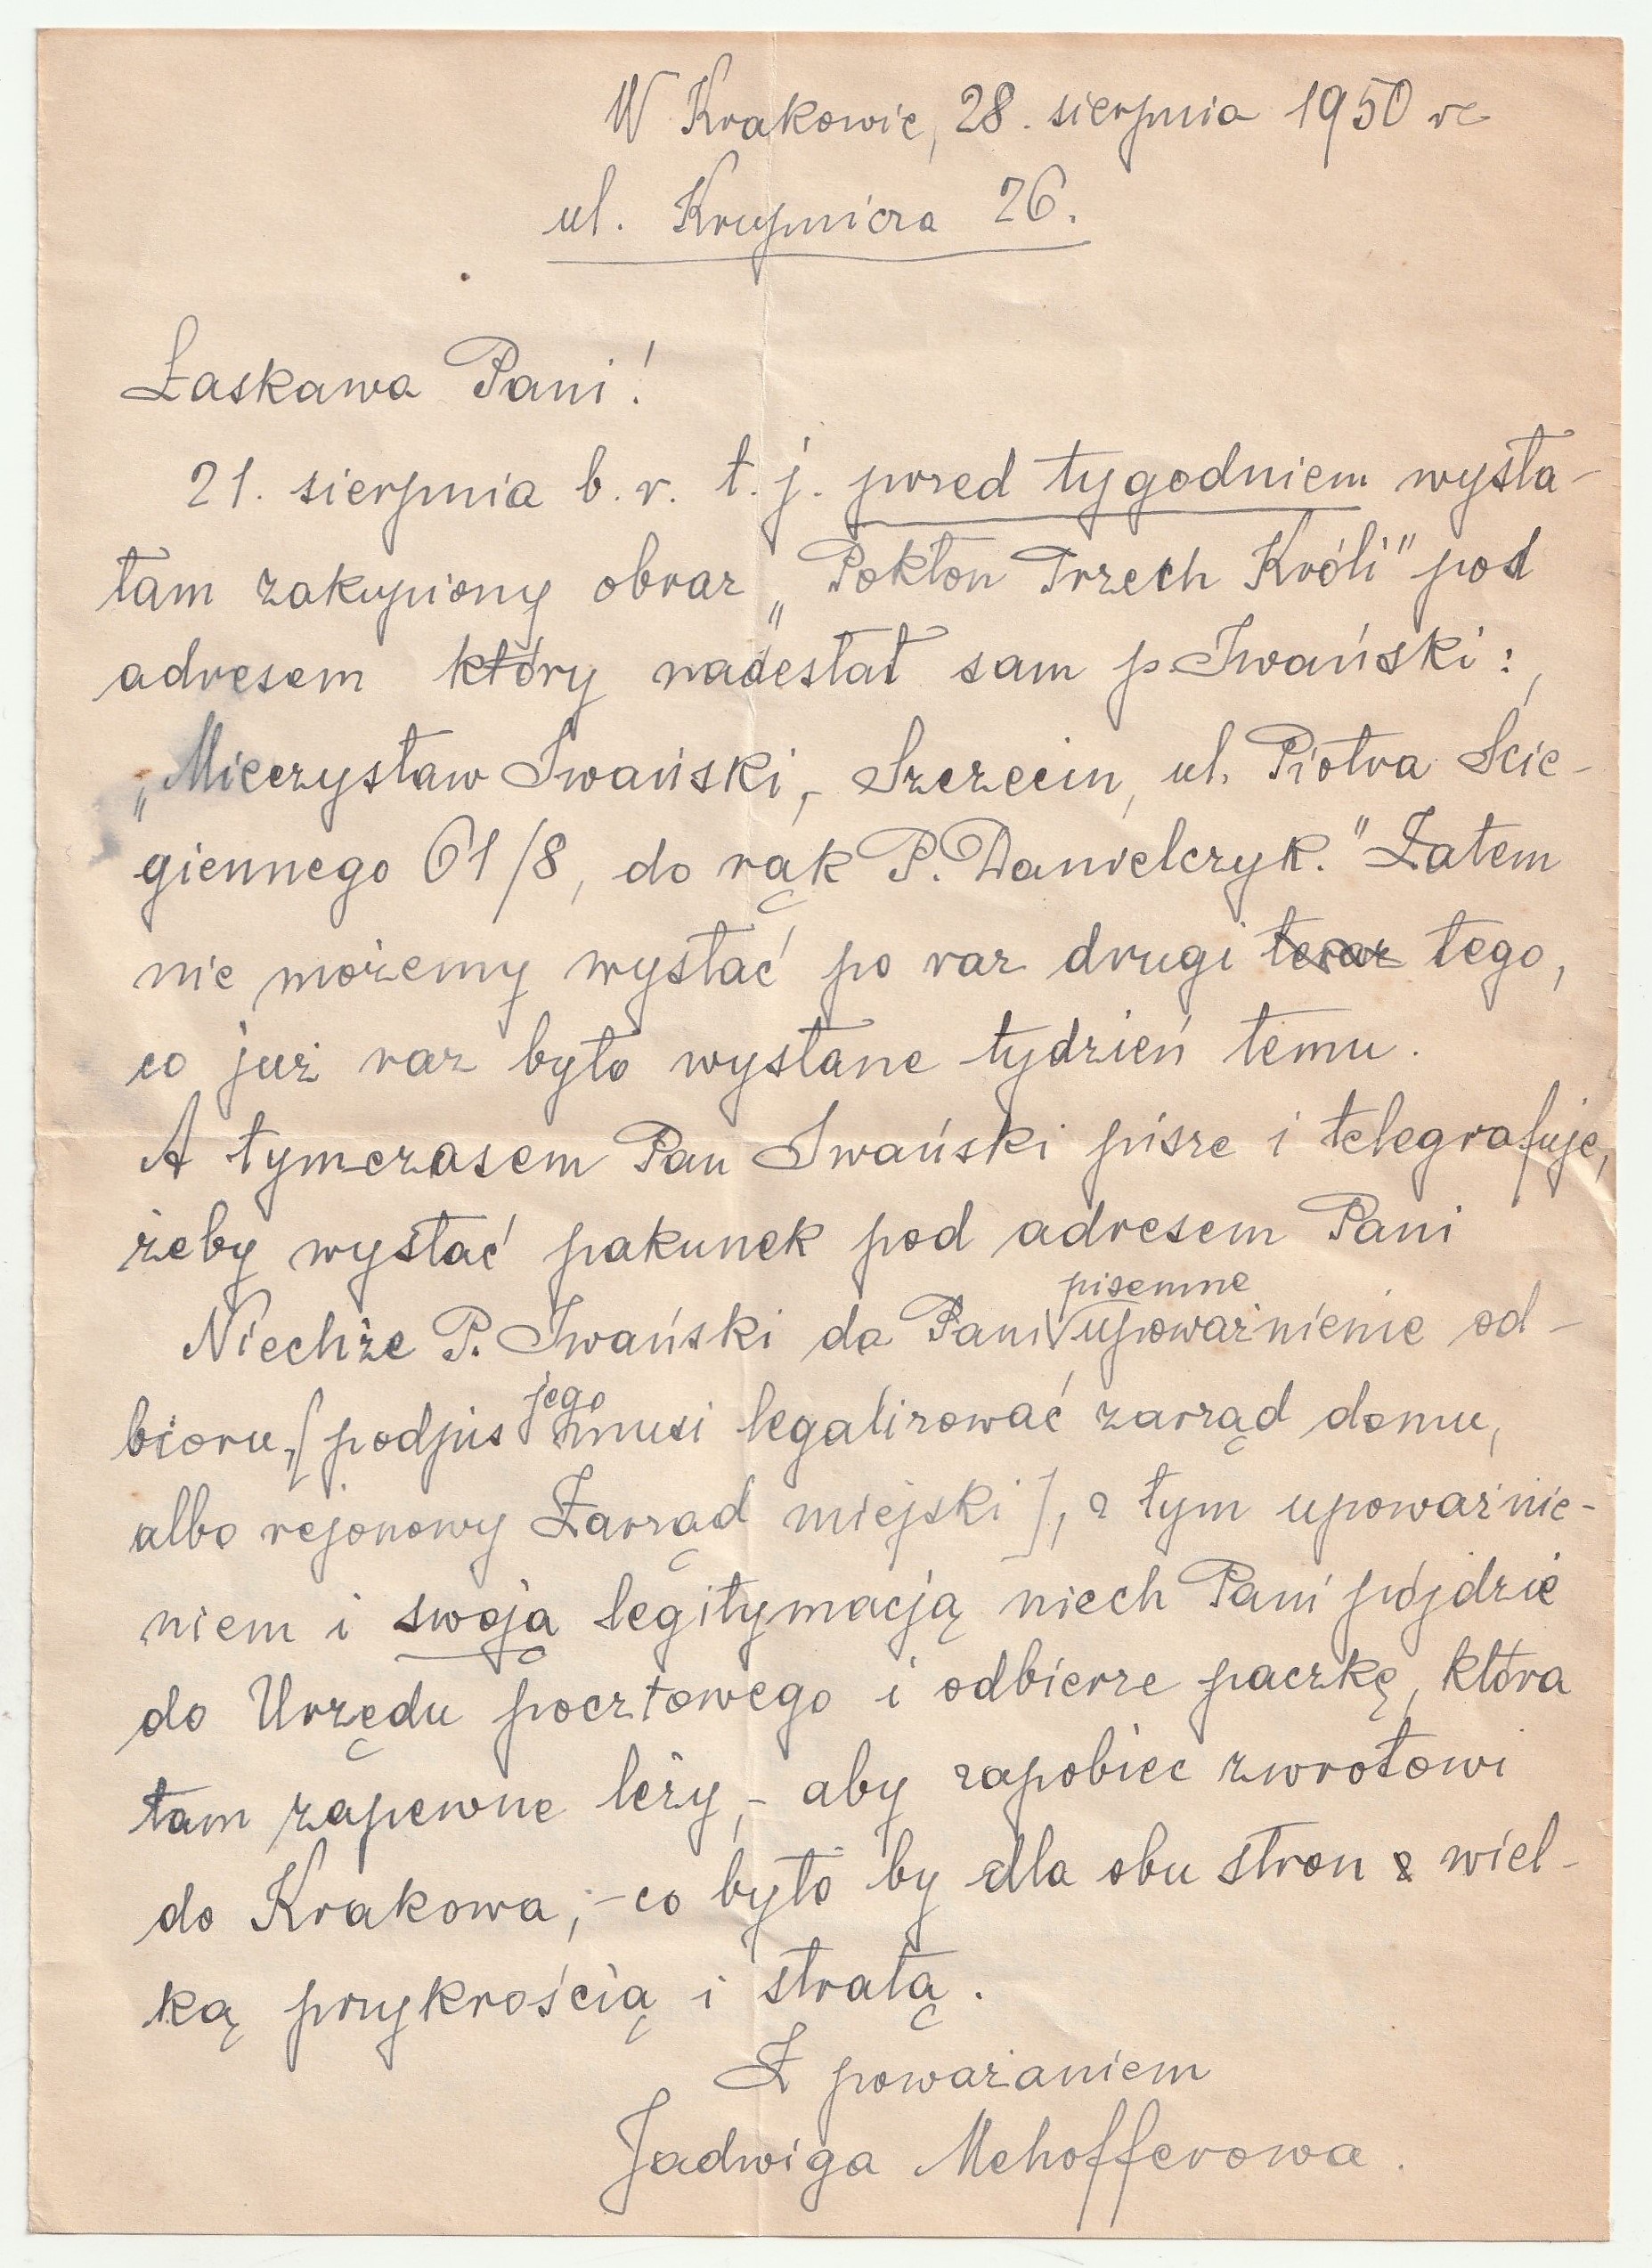 W Krakowie, 28. sierpnia 1950 r
ul. Krupnicza 26.
Łaskawa Pani!
21. sierpnia b. r. t. j. przed tygodniem wysła-
łam zakupiony obraz „Pokłon Trzech Króli" pod
adresem który nadesłał sam p. Iwański:
„Mieczysław Iwański, - Szczecin, ul. Piotra Ście-
giennego 61/8, do rąk P. Danielczyk." Zatem
nie możemy wysłać po raz drugi teraz tego,
co już raz było wysłane tydzień temu.
A tymczasem Pan Iwański pisze i telegrafuje,
żeby wysłać pakunek pod adresem Pani
Niechże P. Iwański da Pani pisemne upoważnienie od-
bioru, [podpis jego musi legalizować zarząd domu,
albo rejonowy Zarząd miejski], z tym upoważnie-
niem i swoją legitymacją niech Pani pójdzie
do Urzędu pocztowego i odbierze paczkę, która
tam zapewne leży, - aby zapobiec zwrotowi
do Krakowa, - co było by dla obu stron z wiel-
ką przykrością i stratą.
Z poważaniem
Jadwiga Mehofferowa.